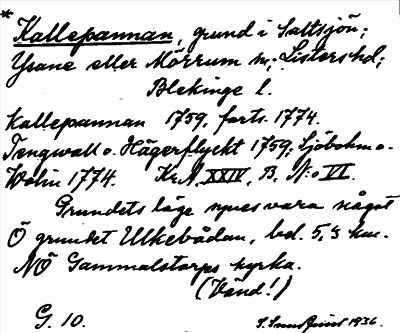 *Kallepannan, grund i Saltsjön;
Ysane eller Mörrum sn; Listers hd;
Blekinge l.
Kallepannan 1759, forts. 1774.
Tengwall o. Hägerflyckt 1759; Sjöbohm o.
Wolin 1774. Kr.A. XXIV, B, No VI.
Grundets läge synes vara något
Ö grundet Ulkebådan, bel. 5,5 km.
NÖ Gammalstorps kyrka.
(Vänd!)
G. 10. 1936.